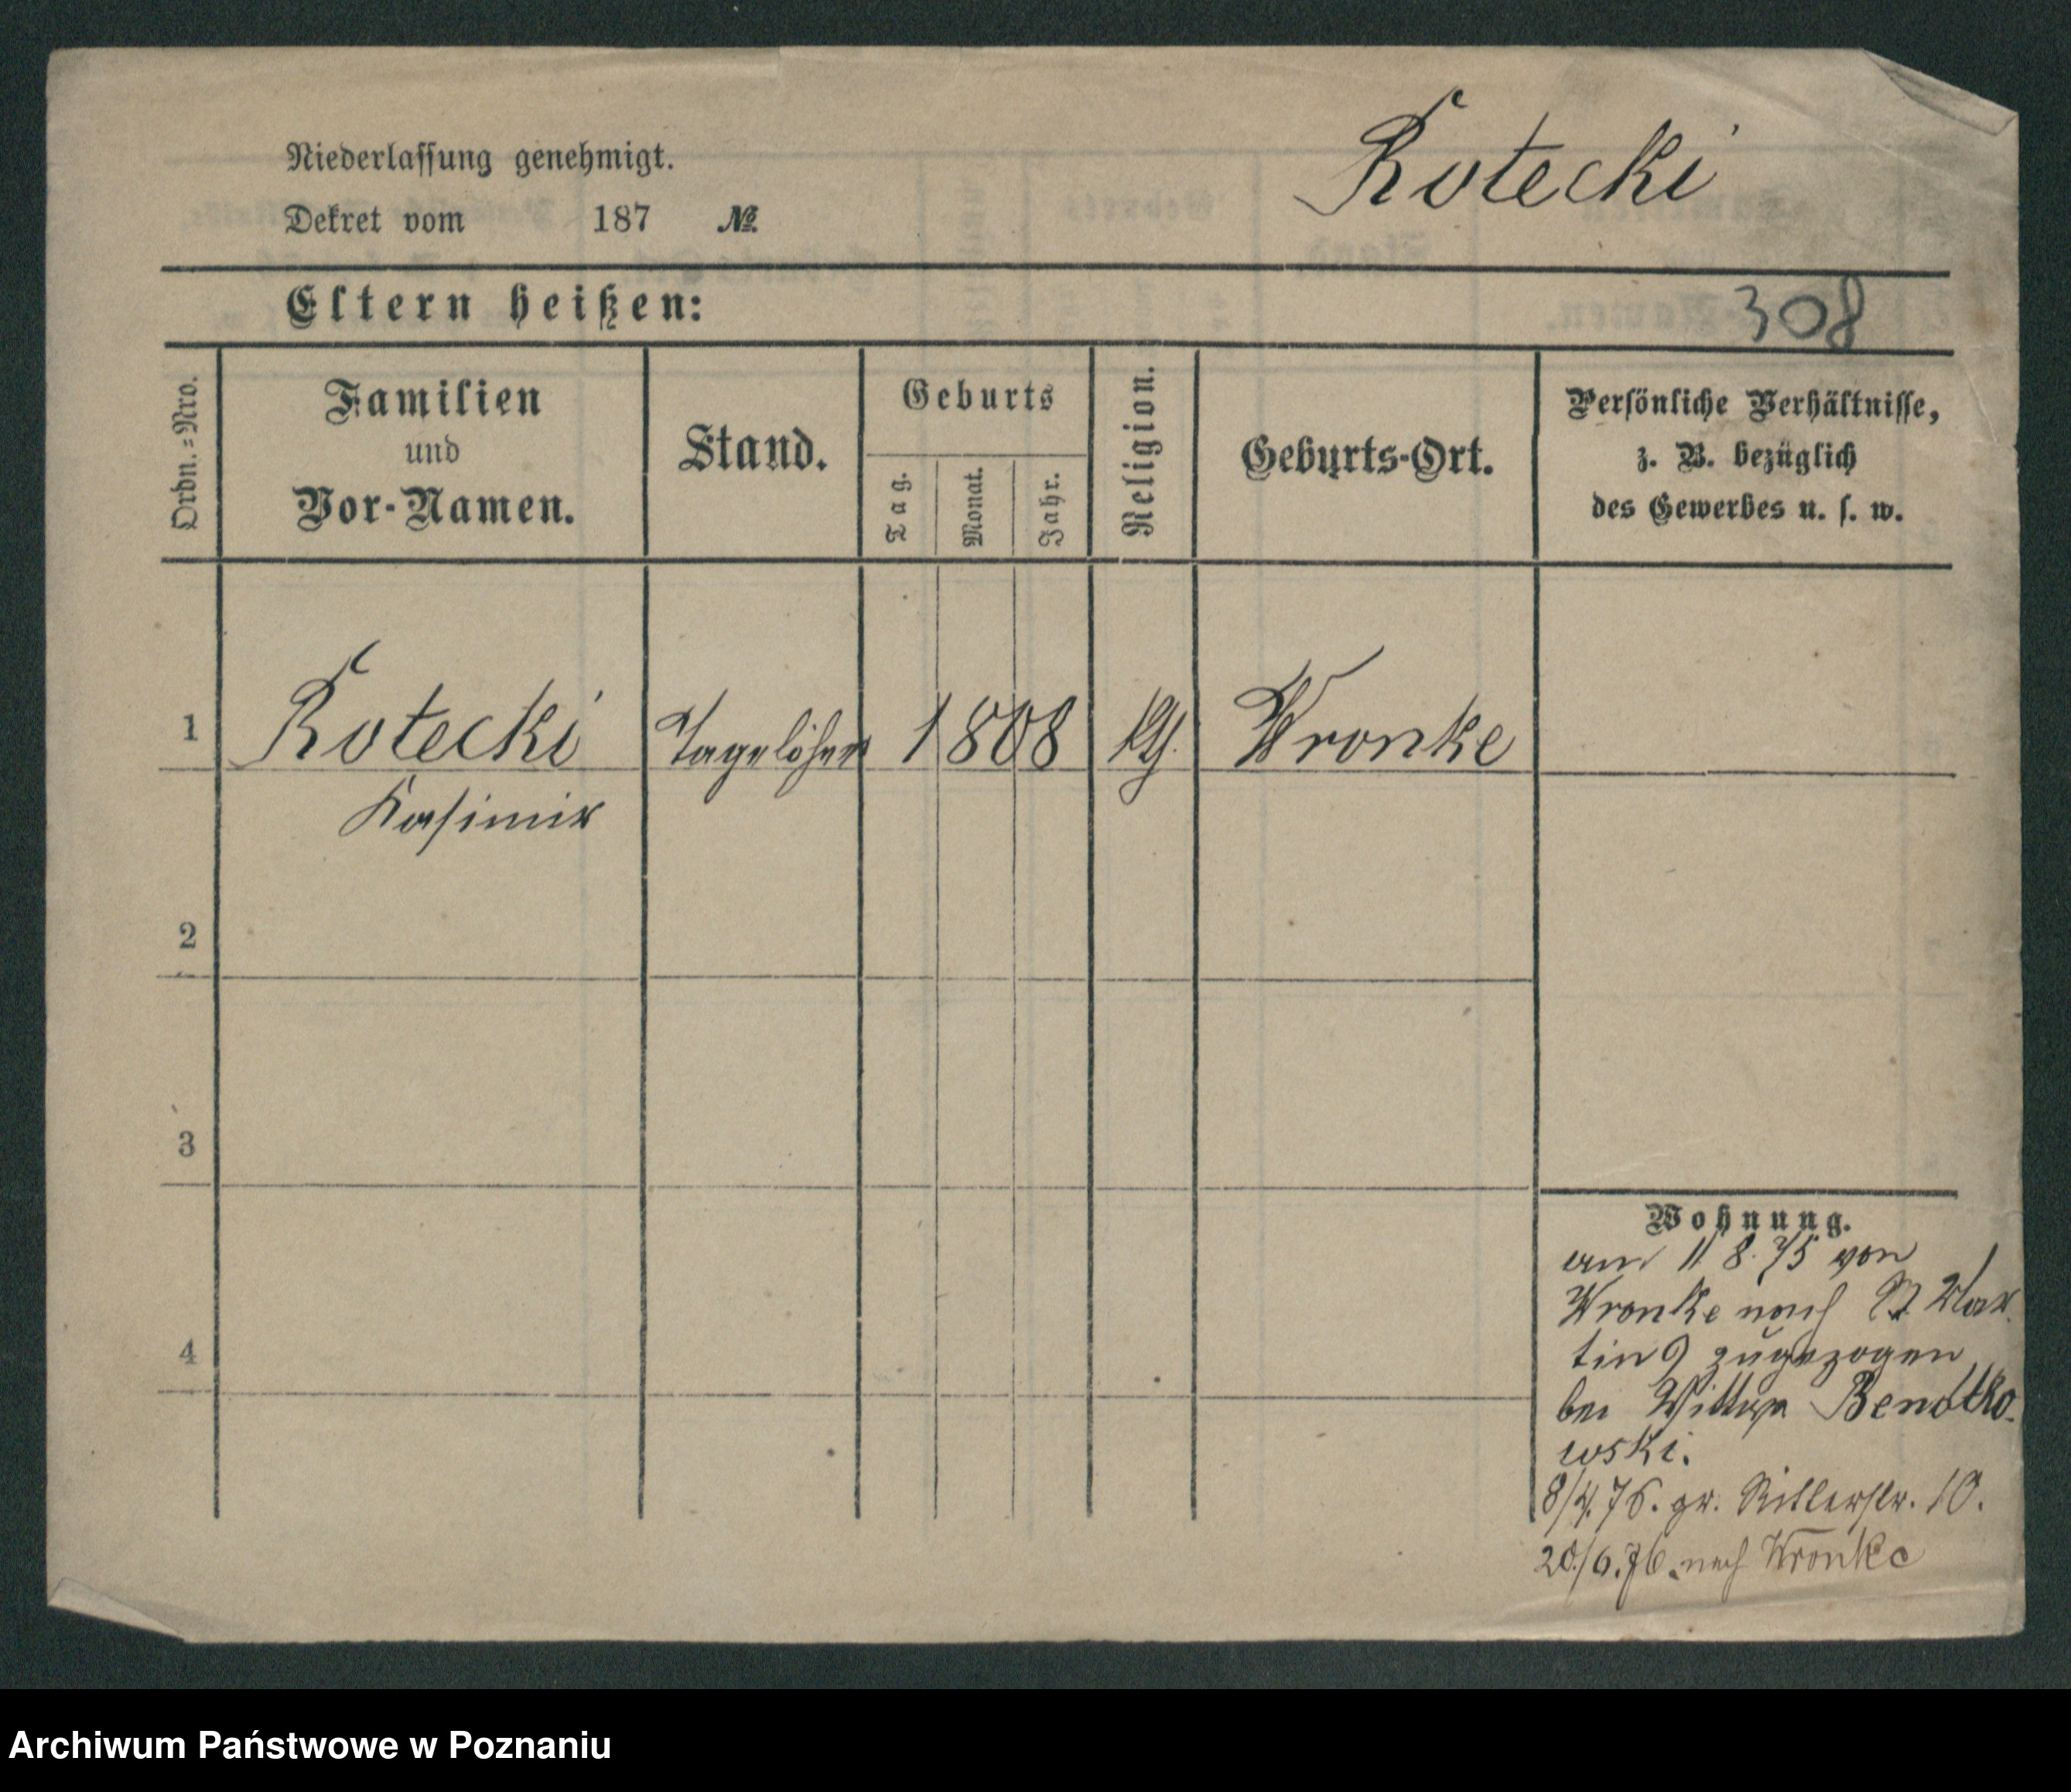 Niederlassung genehmigt.
Dekret vom 187 №
Rotecki
Eltern heißen:
308
Ordn.=Nro.
Familien
und
Vor-Namen.
Stand.
Geburts
Tag.
Monat.
Jahr.
Religion.
Geburts-Ort.
Persönliche Verhältnisse,
z. B. bezüglich
des Gewerbes u. s. w.
1 Rotecki Tagelöhner 1808 Wronke
Kasimir
2
3
4
Wohnung.
am 11 8. 75 von
Wronke nach St Mar
tin 9 zugezogen
bei Wittwe Bendtko-
wski.
8/4.76. gr. Ritterstr. 10.
20/6.76. nach Wronke
Archiwum Państwowe w Poznaniu